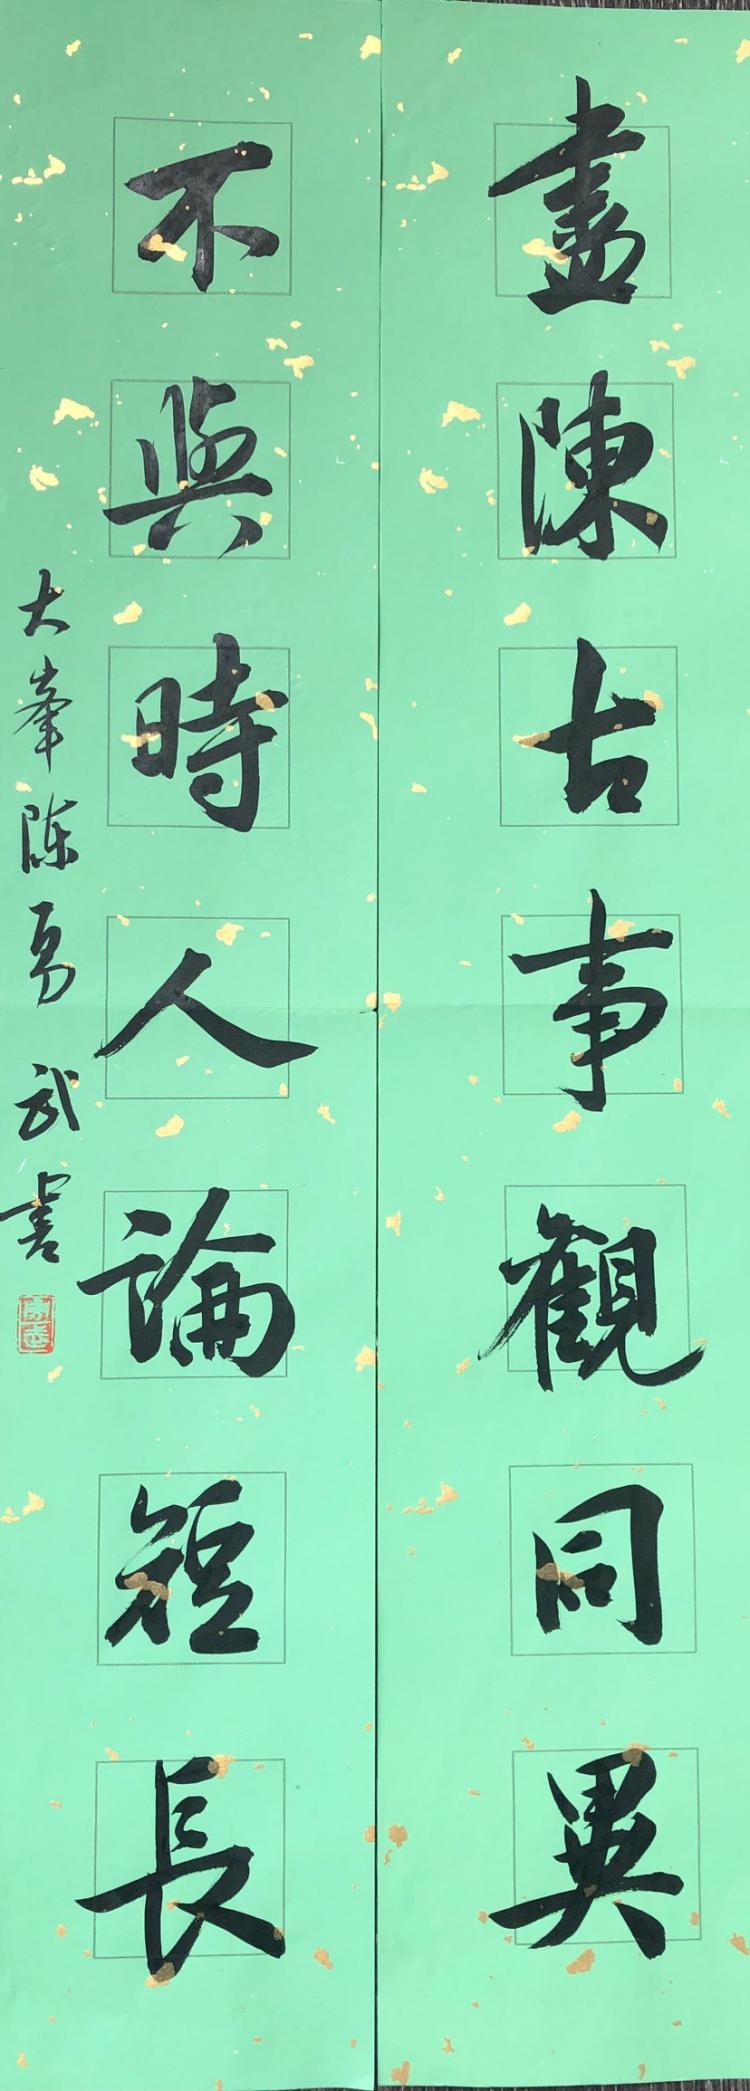 盡陳古事觀同異
不與時人論短長
大峯陈勇武書